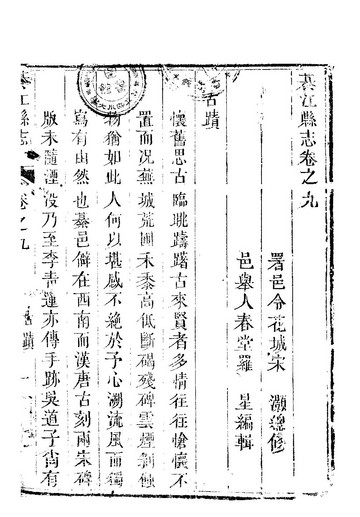 綦江縣志卷之九
署邑令花城宋灝總修
邑舉人春堂羅星編輯
古蹟
懷舊思古臨眺躊躇古來賢者多情往往愴懷不
置而况蕪城荒圃禾黍高低斷碣殘碑雲煙剝蝕
物猶如此人何以堪感不絕於予心溯流風而獨
寫有由然也綦邑僻在西南而漢唐古刻兩朱碑
版未隨湮沒乃至李青蓮亦傳手跡吳道子尚有
綦江縣志
卷之九
古蹟
一